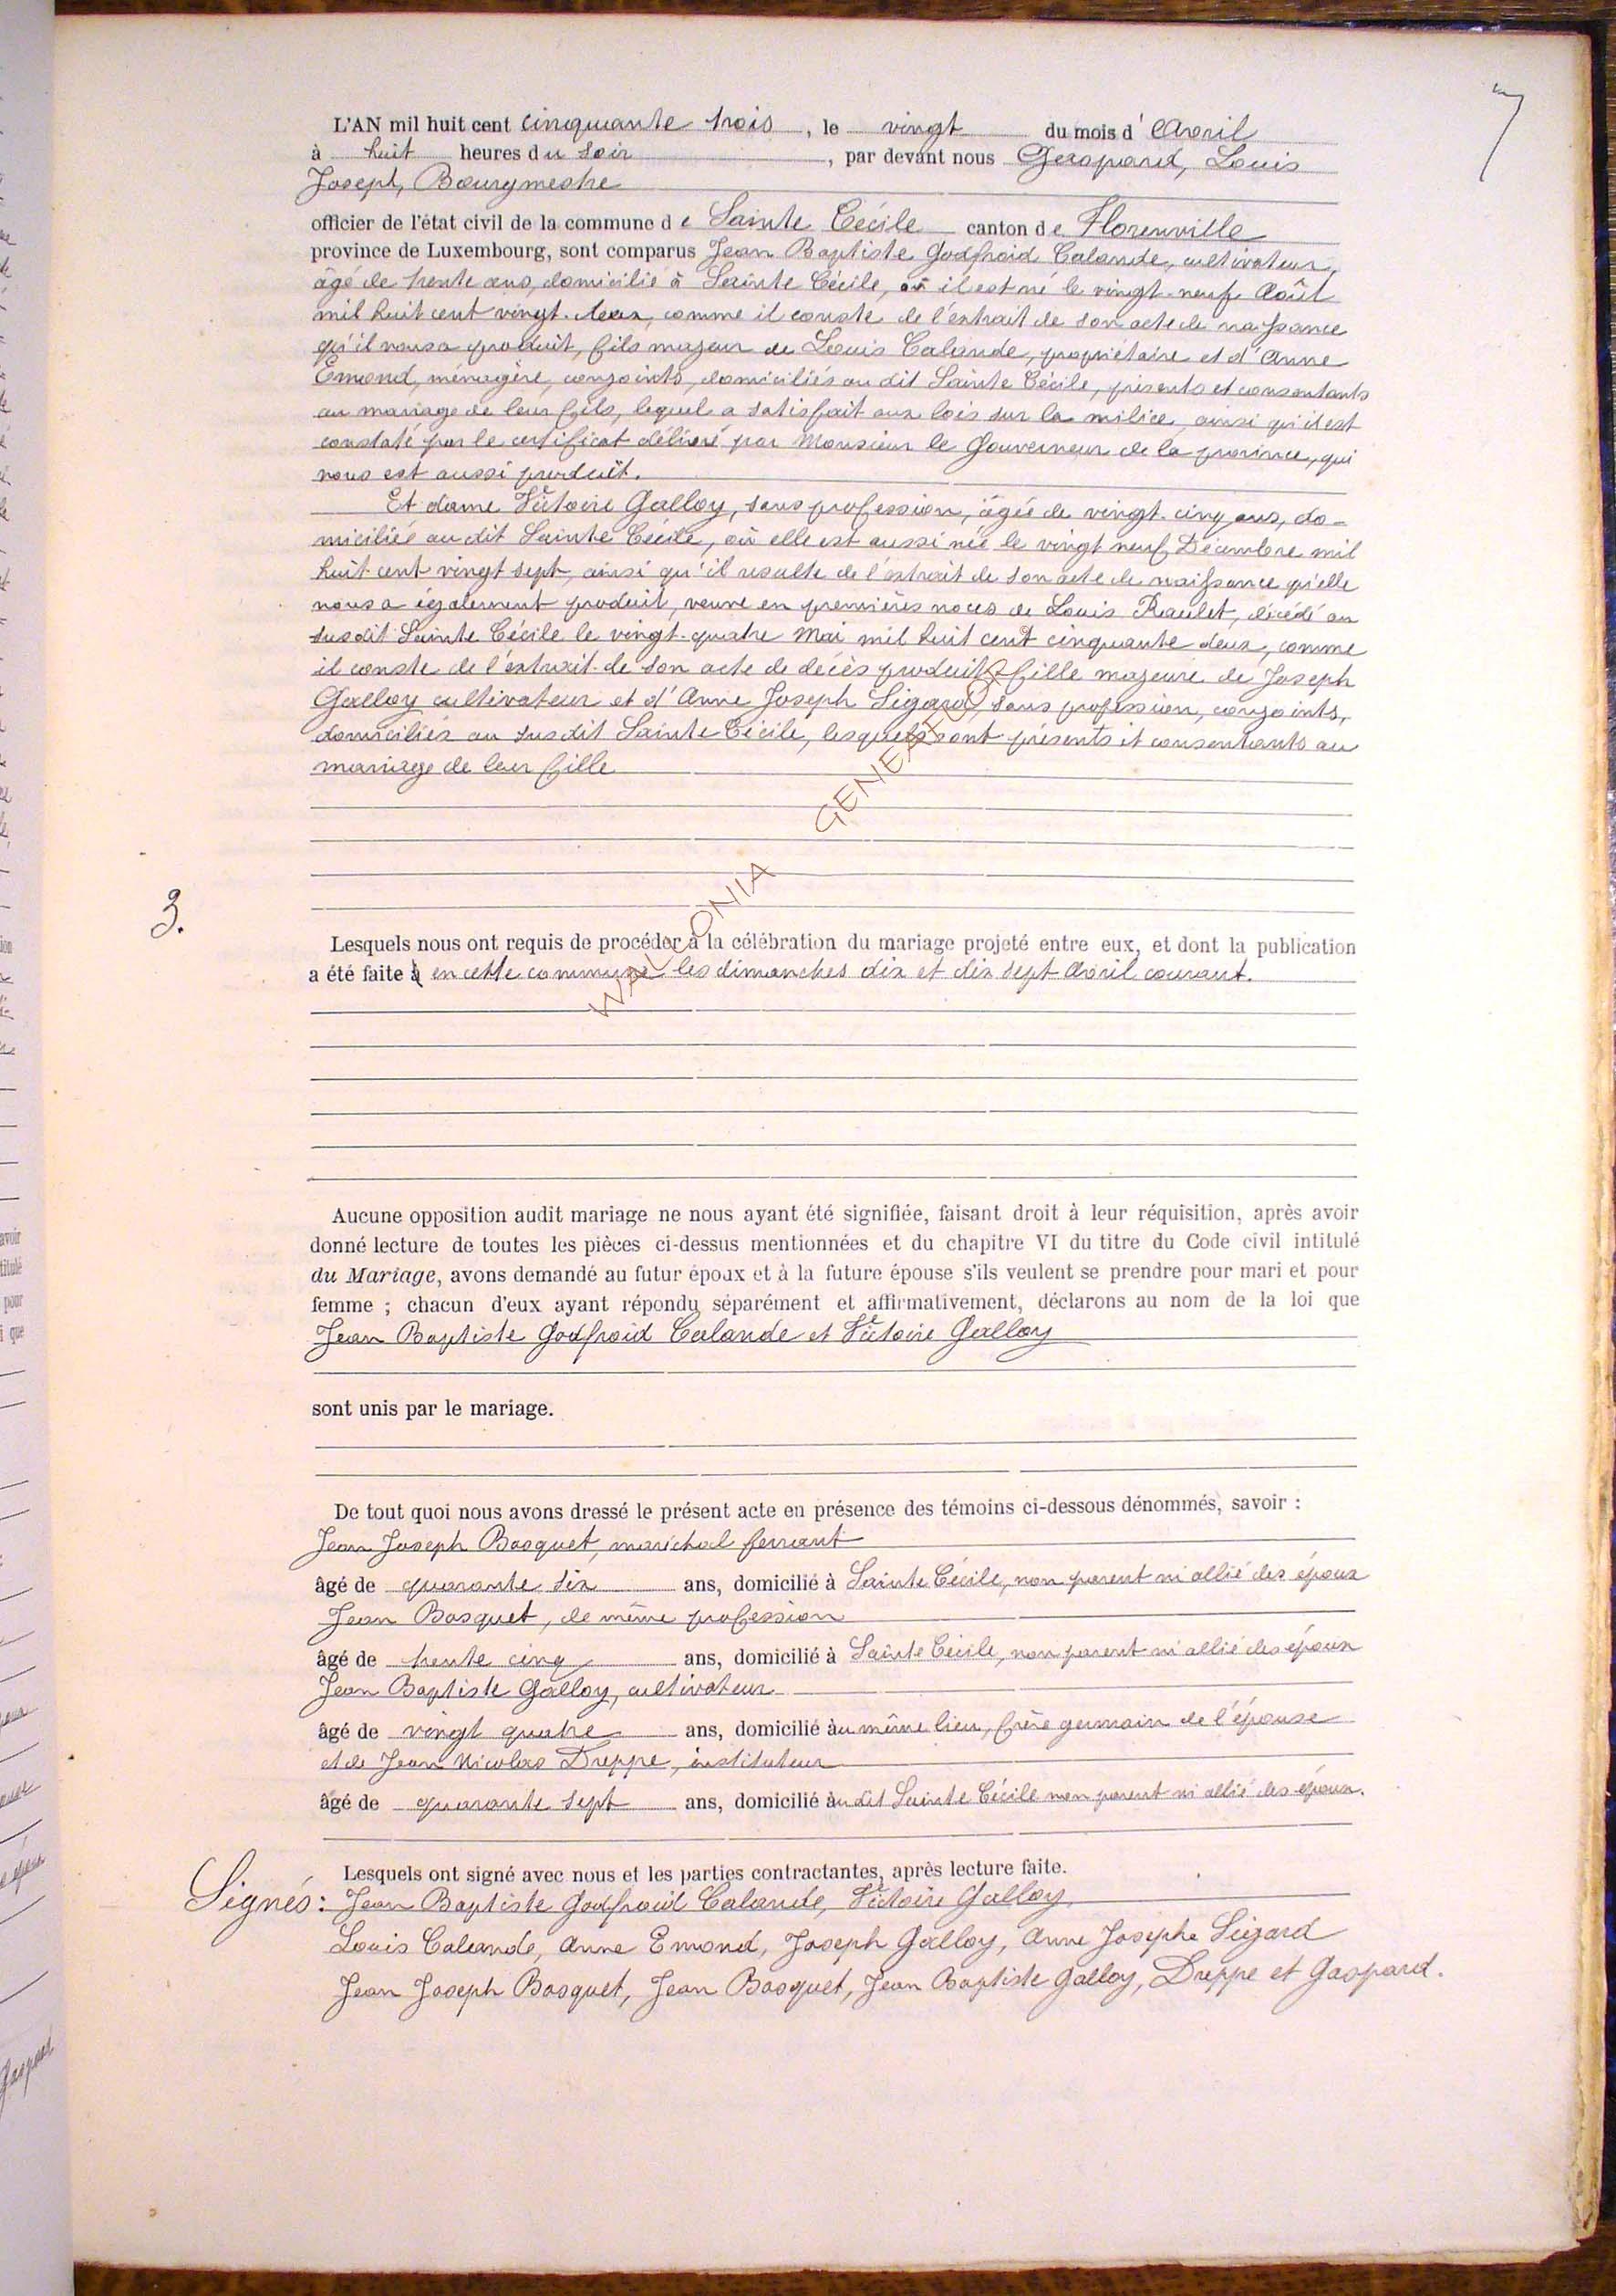 7
L'AN mil huit cent cinquante trois, le vingt du mois d'Avril
à huit heures du soir, par devant nous Gaspard, Louis
Joseph, Bourgmestre
officier de l'état civil de la commune de Sainte Cécile canton de Florenville
province de Luxembourg, sont comparus Jean Baptiste Godfroid Calande, cultivateur,
âgé de trente ans, domicilié à Sainte Cécile, où il est né le vingt-neuf Août
mil huit cent vingt-deux, comme il conste de l'extrait de son acte de naissance
qu'il nous a produit, fils majeur de Louis Calande, propriétaire et d'Anne
Emond, ménagère, conjoints, domiciliés au dit Sainte Cécile, présents et consentants
au mariage de leur fils, lequel a satisfait aux lois sur la milice, ainsi qu'il est
constaté par le certificat délivré par Monsieur le Gouverneur de la province, qui
nous est aussi produit.
Et dame Victoire Galloy, sans profession, âgée de vingt-cinq ans, do-
miciliée au dit Sainte Cécile, où elle est aussi née le vingt neuf Décembre mil
huit cent vingt sept, ainsi qu'il resulte de l'extrait de son acte de naissance qu'elle
nous a également produit, veuve en premières noces de Louis Raulet, décédé au
susdit Sainte Cécile le vingt-quatre Mai mil huit cent cinquante deux, comme
il conste de l'extrait de son acte de décès produit, fille majeure de Joseph
Galloy cultivateur et d'Anne Joseph Sigard, sans profession, conjoints,
domiciliés au susdit Sainte Cécile, lesquels sont présents et consentants au
mariage de leur fille
WALLONIA GENEALOGY
3.
Lesquels nous ont requis de procéder à la célébration du mariage projeté entre eux, et dont la publication
a été faite à en cette commune les dimanches dix et dix sept Avril courant.
Aucune opposition audit mariage ne nous ayant été signifiée, faisant droit à leur réquisition, après avoir
donné lecture de toutes les pièces ci-dessus mentionnées et du chapitre VI du titre du Code civil intitulé
du Mariage, avons demandé au futur époux et à la future épouse s'ils veulent se prendre pour mari et pour
femme ; chacun d'eux ayant répondu séparément et affirmativement, déclarons au nom de la loi que
Jean Baptiste Godfroid Calande et Victoire Galloy
sont unis par le mariage.
De tout quoi nous avons dressé le présent acte en présence des témoins ci-dessous dénommés, savoir :
Jean Joseph Bosquet, maréchal ferrant
âgé de quarante six ans, domicilié à Sainte Cécile, non parent ni allié des époux
Jean Bosquet, de même profession
âgé de trente cinq ans, domicilié à Sainte Cécile, non parent ni allié des époux
Jean Baptiste Galloy, cultivateur
âgé de vingt quatre ans, domicilié au même lieu, frère germain de l'épouse
et de Jean Nicolas Dreppe, instituteur
âgé de quarante sept ans, domicilié au dit Sainte Cécile non parent ni allié des époux.
Lesquels ont signé avec nous et les parties contractantes, après lecture faite.
Signés: Jean Baptiste Godfroid Calande, Victoire Galloy,
Louis Calande, Anne Emond, Joseph Galloy, Anne Josephe Sigard
Jean Joseph Bosquet, Jean Bosquet, Jean Baptiste Galloy, Dreppe et Gaspard.